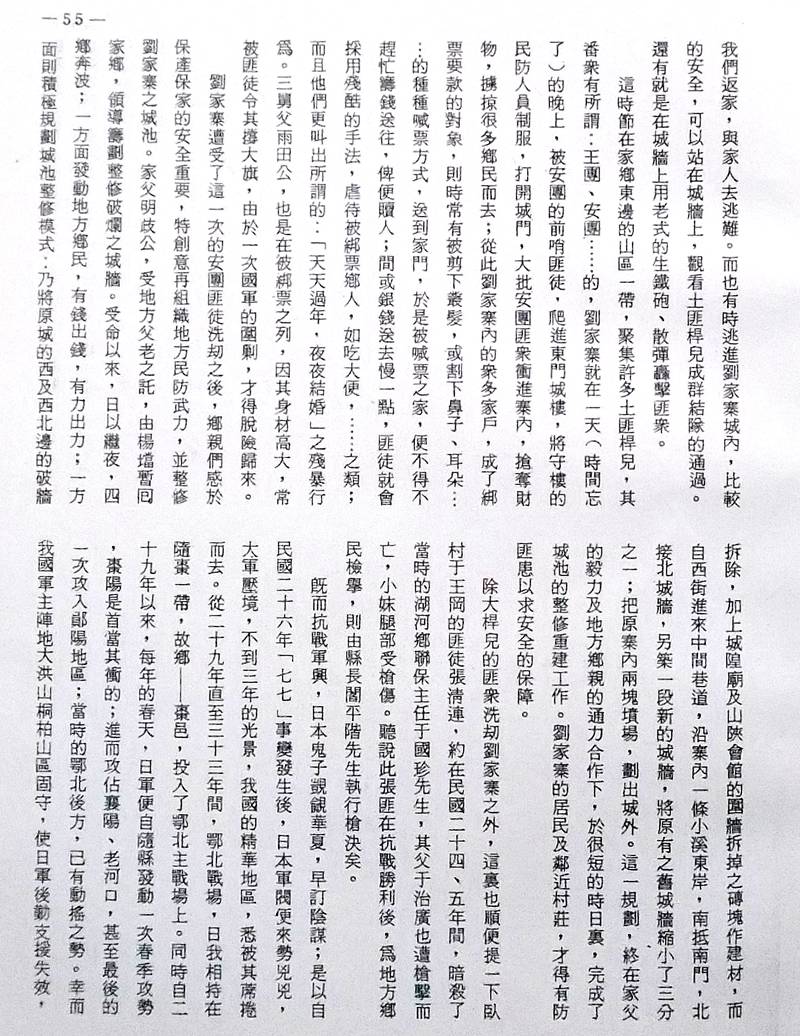 —55—
我們返家，與家人去逃難。而也有時逃進劉家寨城內，比較
的安全，可以站在城牆上，觀看土匪桿兒成群結隊的通過。
還有就是在城牆上用老式的生鐵砲、散彈轟擊匪衆。
這時節在家鄉東邊的山區一帶，聚集許多土匪桿兒，其
番衆有所謂：王團、安團……的，劉家寨就在一天（時間忘
了）的晚上，被安團的前哨匪徒，爬進東門城樓，將守樓的
民防人員制服，打開城門，大批安團匪衆衝進寨內，搶奪財
物，擄掠很多鄉民而去；從此劉家寨內的衆多家戶，成了綁
票要款的對象，則時常有被剪下叢髮，或割下鼻子、耳朵…
…的種種喊票方式，送到家門，於是被喊票之家，便不得不
趕忙籌錢送往，俾便贖人；間或銀錢送去慢一點，匪徒就會
採用殘酷的手法，虐待被綁票鄉人，如吃大便，……之類；
而且他們更叫出所謂的：「天天過年，夜夜結婚」之殘暴行
為。三舅父雨田公，也是在被綁票之列，因其身材高大，常
被匪徒令其撐大旗，由於一次國軍的圍剿，才得脫險歸來。
劉家寨遭受了這一次的安團匪徒洗刧之後，鄉親們感於
保產保家的安全重要，特創意再組織地方民防武力，並整修
劉家寨之城池。家父明歧公，受地方父老之託，由楊壋暫回
家鄉，領導籌劃整修破爛之城牆。受命以來，日以繼夜，四
鄉奔波；一方面發動地方鄉民，有錢出錢，有力出力；一方
面則積極規劃城池整修模式：乃將原城的西及西北邊的破牆
拆除，加上城隍廟及山陝會館的圍牆拆掉之磚塊作建材，而
自西街進來中間巷道，沿寨內一條小溪東岸，南抵南門，北
接北城牆，另築一段新的城牆，將原有之舊城牆縮小了三分
之一；把原寨內兩塊墳場，劃出城外。這一規劃，終在家父
的毅力及地方鄉親的通力合作下，於很短的時日裏，完成了
城池的整修重建工作。劉家寨的居民及鄰近村莊，才得有防
匪患以求安全的保障。
除大桿兒的匪衆洗刧劉家寨之外，這裏也順便提一下臥
村于王岡的匪徒張淸連，約在民國二十四、五年間，暗殺了
當時的湖河鄉聯保主任于國珍先生，其父于治廣也遭槍擊而
亡，小妹腿部受槍傷。聽說此張匪在抗戰勝利後，爲地方鄉
民檢舉，則由縣長閻平階先生執行槍決矣。
旣而抗戰軍興，日本鬼子覬覦華夏，早訂陰謀；是以自
民國二十六年「七七」事變發生後，日本軍閥便來勢兇兇，
大軍壓境，不到三年的光景，我國的精華地區，悉被其蓆捲
而去。從二十九年直至三十三年間，鄂北戰場，日我相持在
隨棗一帶，故鄉——棗邑，投入了鄂北主戰場上。同時自二
十九年以來，每年的春天，日軍便自隨縣發動一次春季攻勢
，棗陽是首當其衝的；進而攻佔襄陽、老河口，甚至最後的
一次攻入鄖陽地區；當時的鄂北後方，已有動搖之勢。幸而
我國軍主陣地大洪山桐柏山區固守，使日軍後勤支援失效，